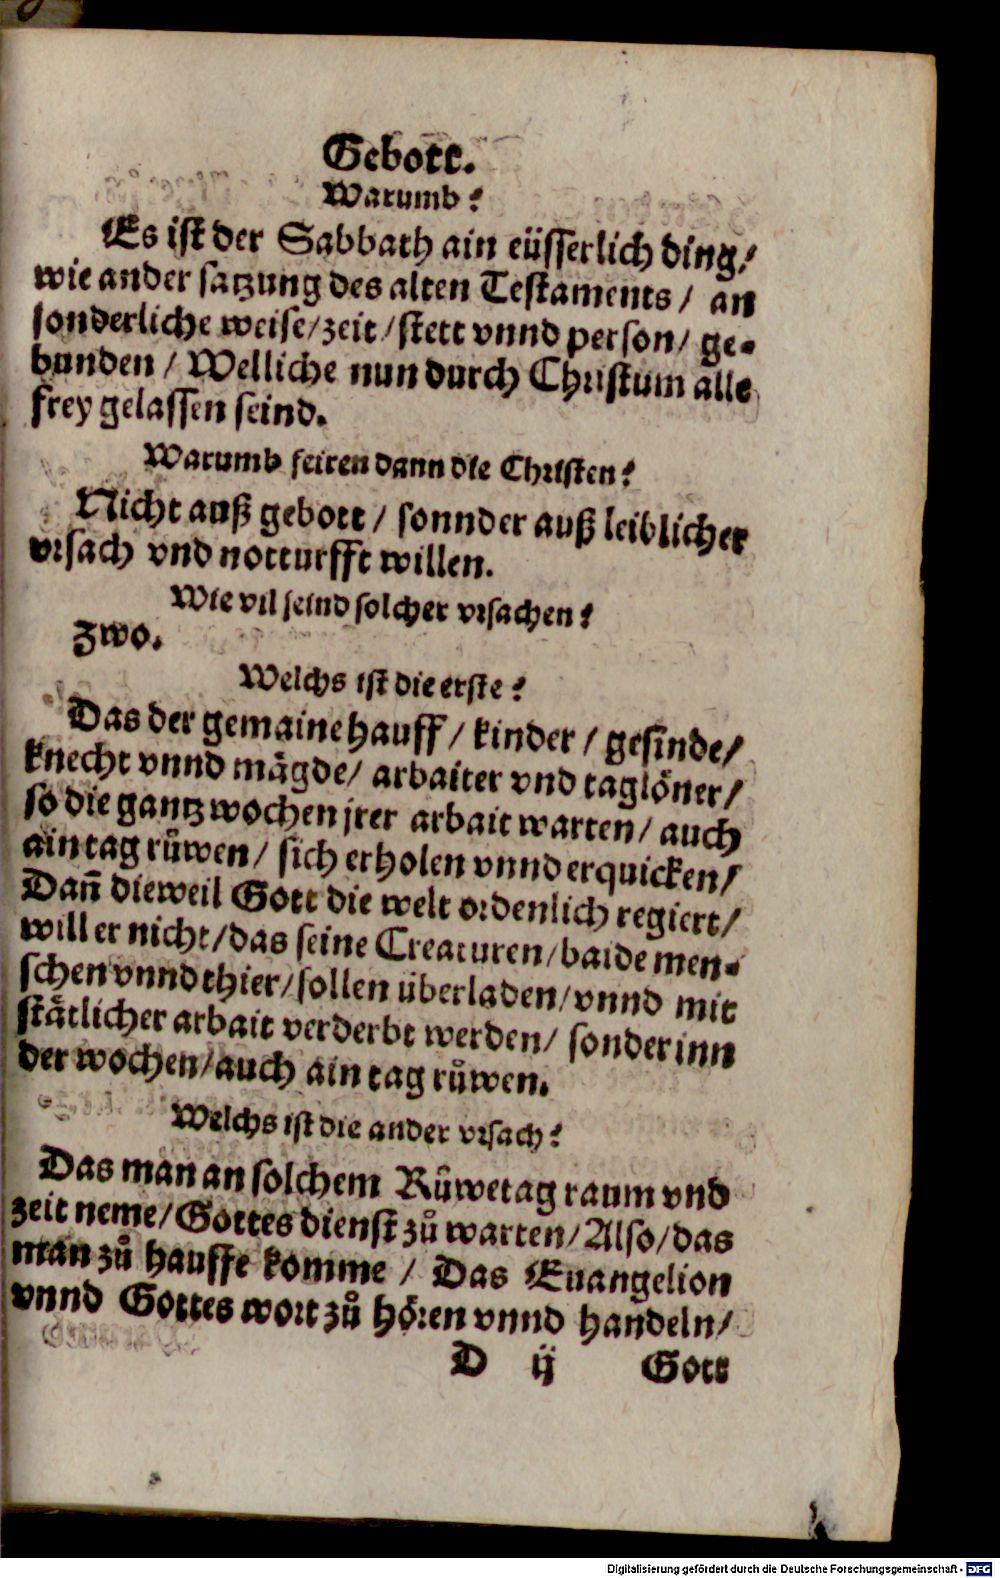 Gebott.
Warumb?
Es ist der Sabbath ain eüsserlich ding/
wie ander satzung des alten Testaments / an
sonderliche weise/zeit/stett vnnd person/ ge-
bunden / Welliche nun durch Christum alle
frey gelassen seind.
Warumb feiren dann die Christen?
Nicht auß gebott / sonnder auß leiblicher
vrsach vnd notturfft willen.
Wie vil seind solcher vrsachen?
Zwo.
Welchs ist die erste?
Das der gemaine hauff / kinder / gesinde/
knecht vnnd mägde/ arbaiter vnd taglöner/
so die gantz wochen jrer arbait warten/ auch
ain tag růwen/ sich erholen vnnd erquicken/
Dañ dieweil Gott die welt ordenlich regiert/
will er nicht/das seine Creaturen/baide men-
schen vnnd thier/sollen überladen/vnnd mit
stätlicher arbait verderbt werden/ sonder inn
der wochen/auch ain tag růwen.
Welchs ist die ander vrsach?
Das man an solchem Růwetag raum vnd
zeit neme/Gottes dienst zů warten/Also/das
man zů hauffe komme / Das Euangelion
vnnd Gottes wort zů hören vnnd handeln/
D ij Gott
Digitalisierung gefördert durch die Deutsche Forschungsgemeinschaft - DFG